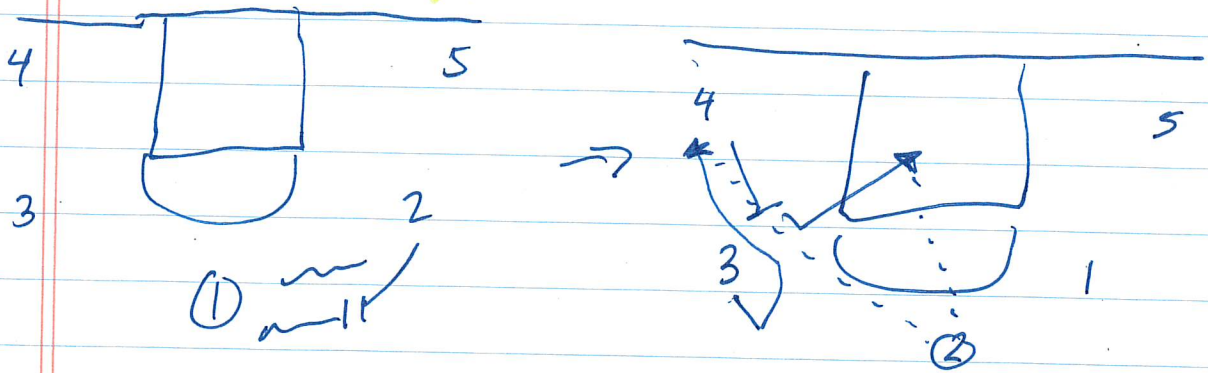 4 5
3 2
①
4 5
3 1
②